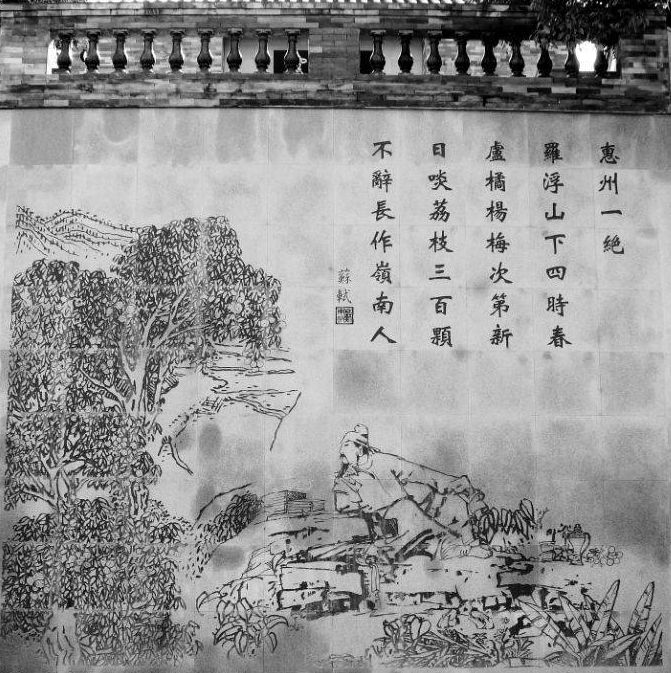 惠州一絶
羅浮山下四時春
盧橘楊梅次第新
日啖荔枝三百顆
不辭長作嶺南人
蘇軾